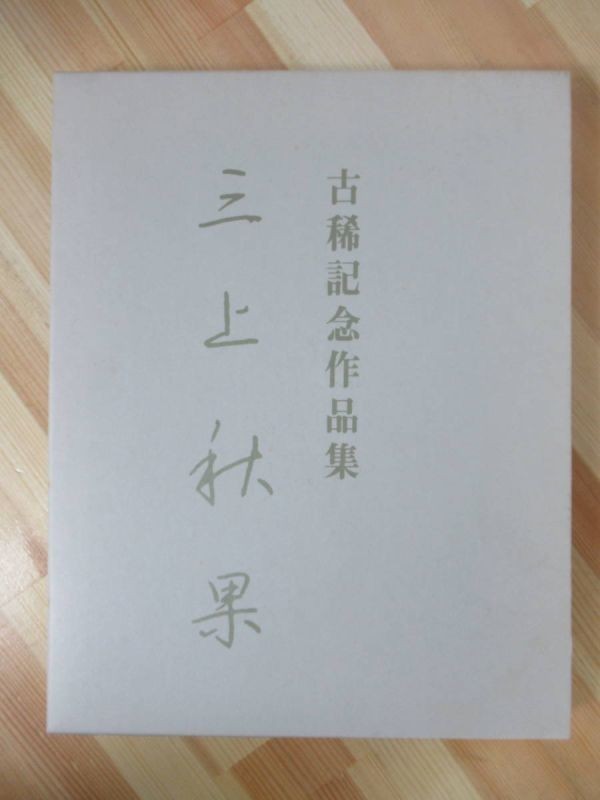 古稀記念作品集
三上秋果